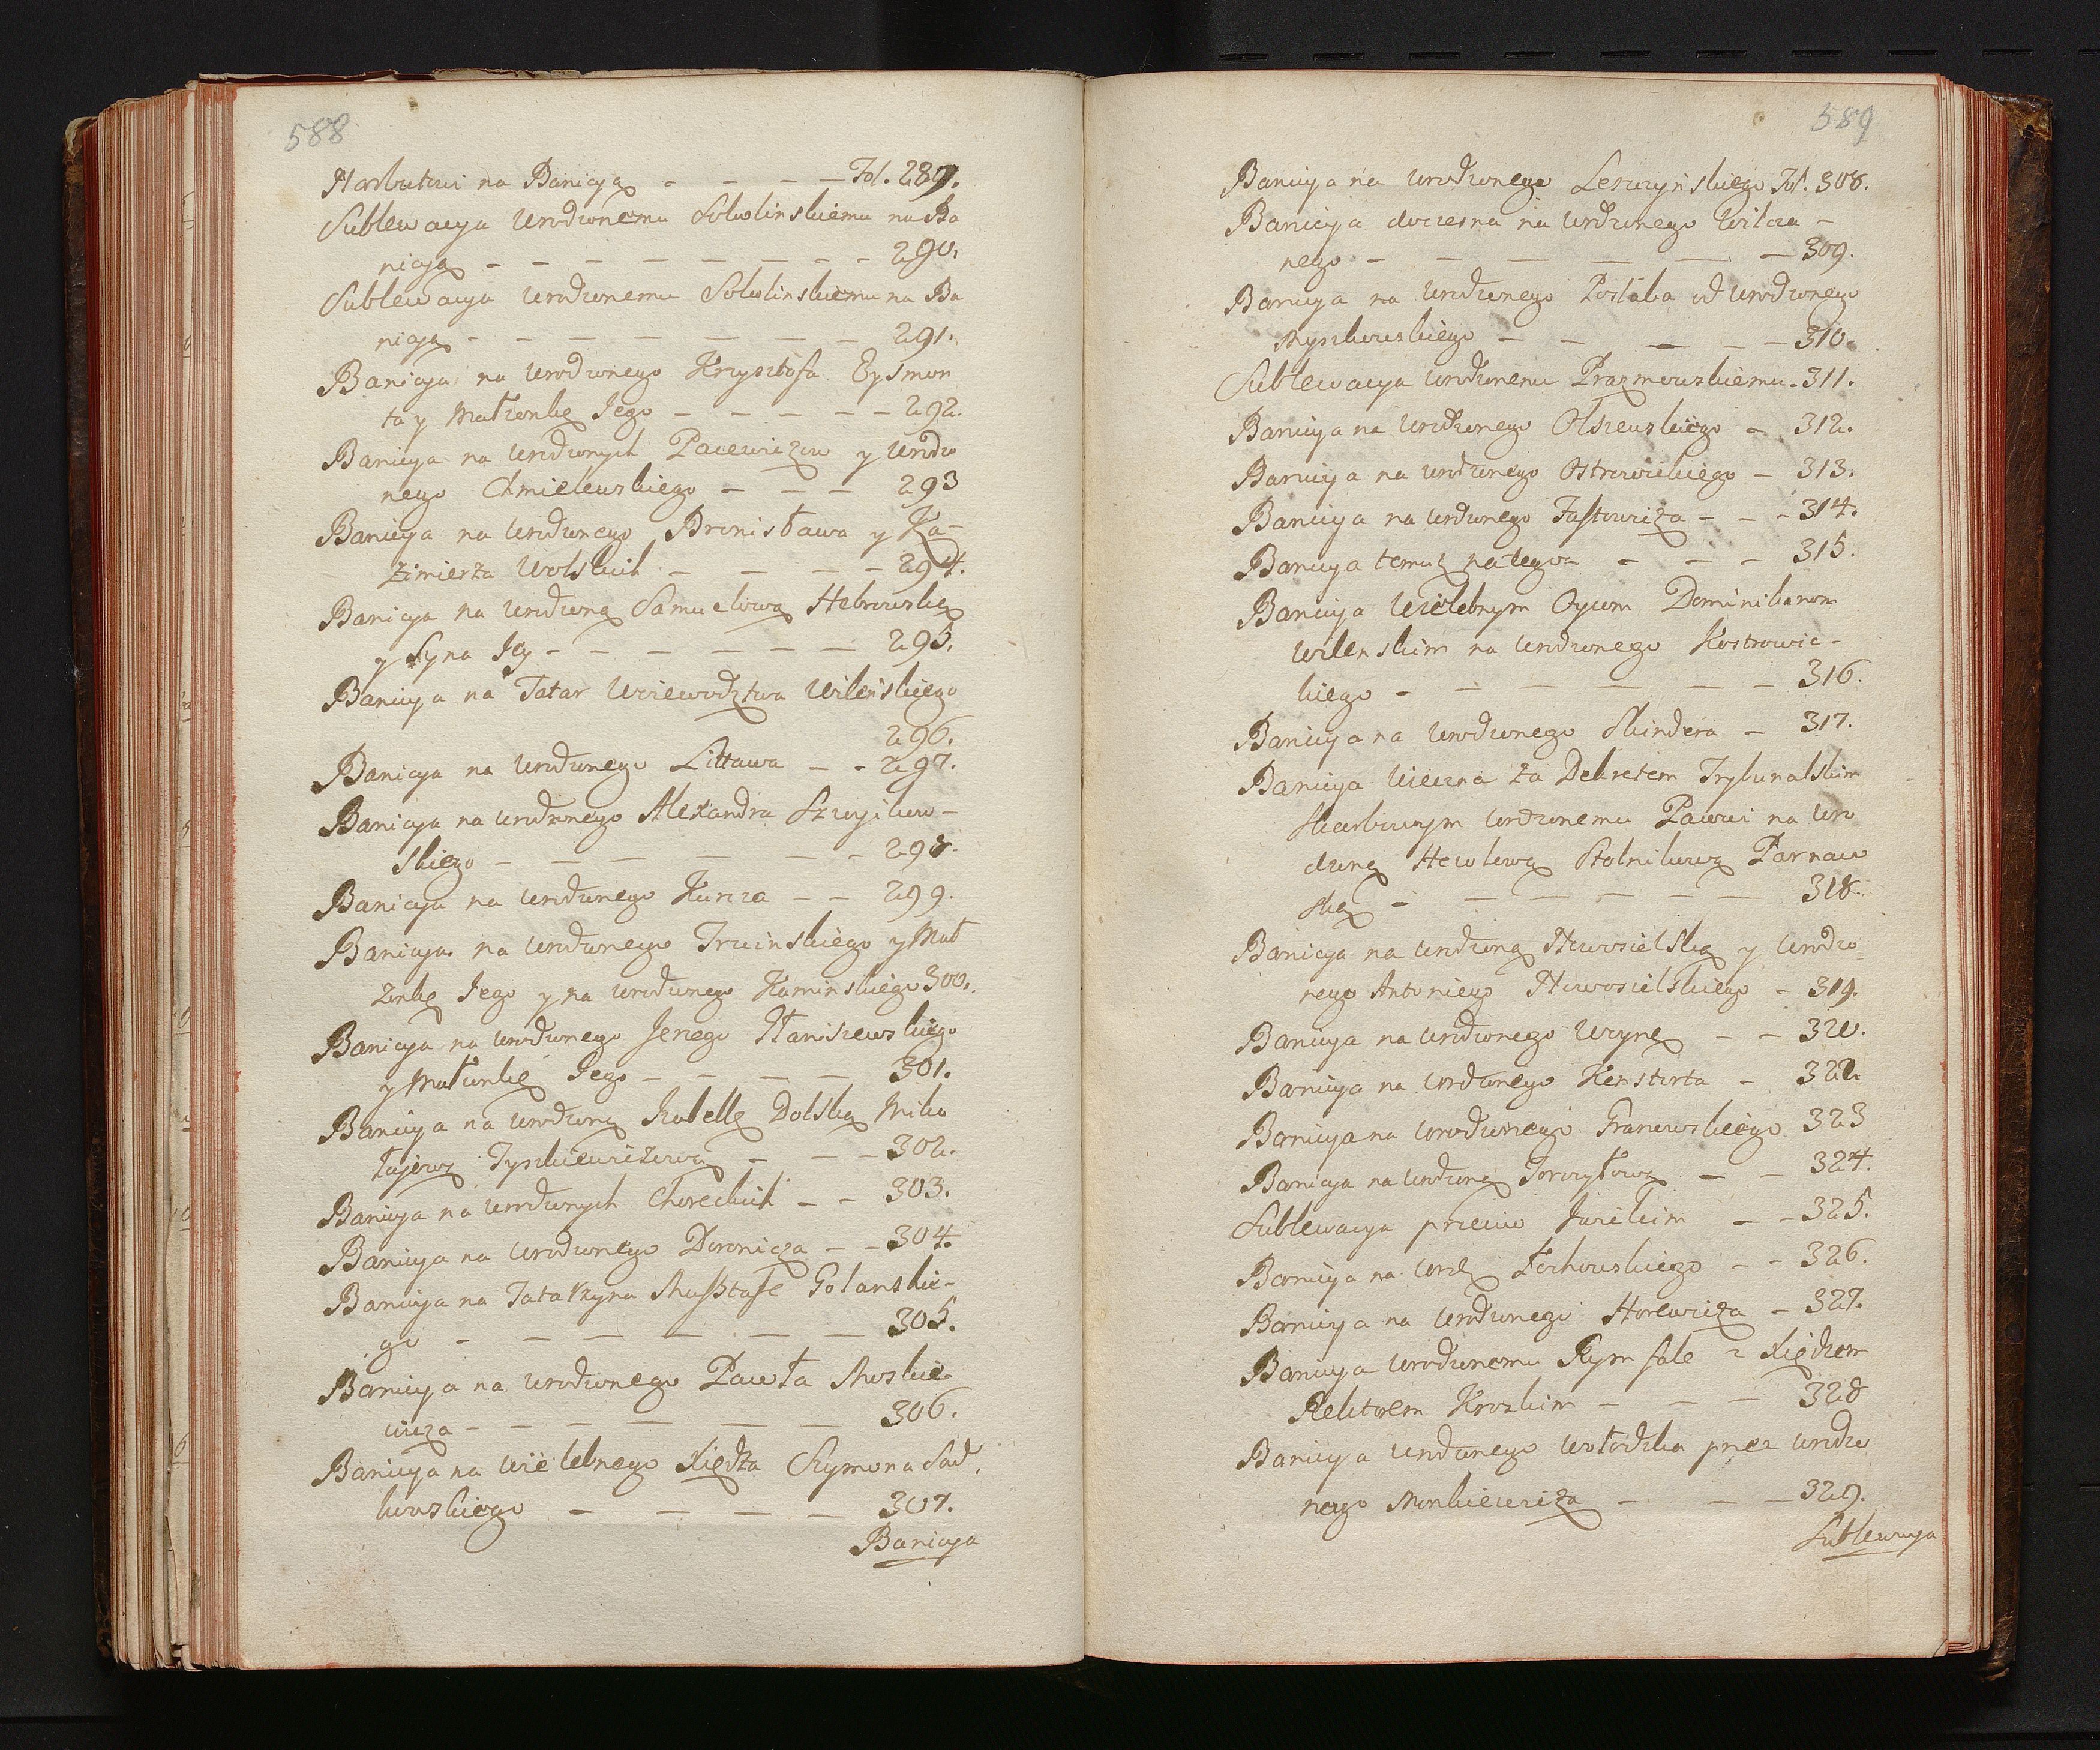 588
Narbutowi na Banicyą - - - - Fol. 289.
Sublewacya Urodzonemu Sokolinskiemu na Ba
nicyą - - - - - - - - 290.
Sublewacya Urodzonemu Sokolinskiemu na Ba
nicyą - - - - - - - - 291.
Banicya na Urodzonego Krzysztofa Eysmon
ta y Małzonkę Jego - - - - - 292.
Banicya na Urodzonych Pacewiczow y Urodzo
nego Chmielewskiego - - - 293
Banicya na Urodzonego Bronisława y Ka-
zimierza Wolskich - - - - 294.
Banicya na Urodzoną Samuelową Hebrowską
y Syna Jey - - - - - - 295.
Banicya na Tatar Woiewodztwa Wilenskiego
296.
Banicya na Urodzonego Littawa - - 297.
Banicya na Urodzonego Alexandra Szwyikow-
skiego - - - - - - 298.
Banicya na Urodzonego Kurcza - - 299.
Banicya na Urodzonego Irwinskiego y Mał
zonkę Jego y na Urodzonego Kaminskiego 300.
Banicya na Urodzonego Jerzego Staniszewskiego
y Małzonkę Jego - - - - 301.
Banicya na Urodzoną Izabellę Dolską Miko
łajową Tyszkiewiczową - - - 302.
Banicya na Urodzonych Choreckich - - 303.
Banicya na Urodzonego Doronicza - - 304.
Banicya na Tatarzyna Musstafe Golanskie-
go - - - - - - 305.
Banicya na Urodzonego Pawła Moskie
wicza - - - - - - 306.
Banicya na Wielebnego Xiędza Szymona Sad
kowskiego - - - - 307.
Banicya
589
Banicya na Urodzonego Leszczynskiego Fol. 308.
Banicya doczesna na Urodzonego Wilcza-
nego - - - - - - 309.
Banicya na Urodzonego Posłaba od Urodzonego
Myszkowskiego - - - - - 310.
Sublewacya Urodzonemu Prazmowskiemu - 311.
Banicya na Urodzonego Olszewskiego - 312.
Banicya na Urodzonego Ostrowickiego - 313.
Banicya na Urodzonego Fastowicza - - - 314.
Banicya temuz na tego - - - - 315.
Banicya Wielebnym Oycom Dominikanom
Wilenskim na Urodzonego Kostrowic-
kiego - - - - - - 316.
Banicya na Urodzonego Skindera - 317.
Banicya Wieczna za Dekretem Trybunalskim
Skarbowym Urodzonemu Pacowi na Uro
dzoną Hewelową Stolnikową Parnaw
ską - - - - - - 318.
Banicya na Urodzoną Nowosielską y Urodzo
nego Antoniego Nowosielskiego - 319.
Banicya na Urodzonego Uzynę - - 320.
Banicya na Urodzonego Kensterta - 322.
Banicya na Urodzonego Granowskiego 323
Banicya na Urodzoną Torczyłową - - 324.
Sublewacya przeciw Jurikim - - 325.
Banicya na Urodz Łochowskiego - - 326.
Banicya na Urodzonego Horewicza - 327.
Banicya Urodzonemu Rymszle z Xiędzem
Rektorem Kroskim - - - 328
Banicya Urodzonego Wołodzka przez Urodzo
nego Monkiewicza - - - 329.
Sublewacya